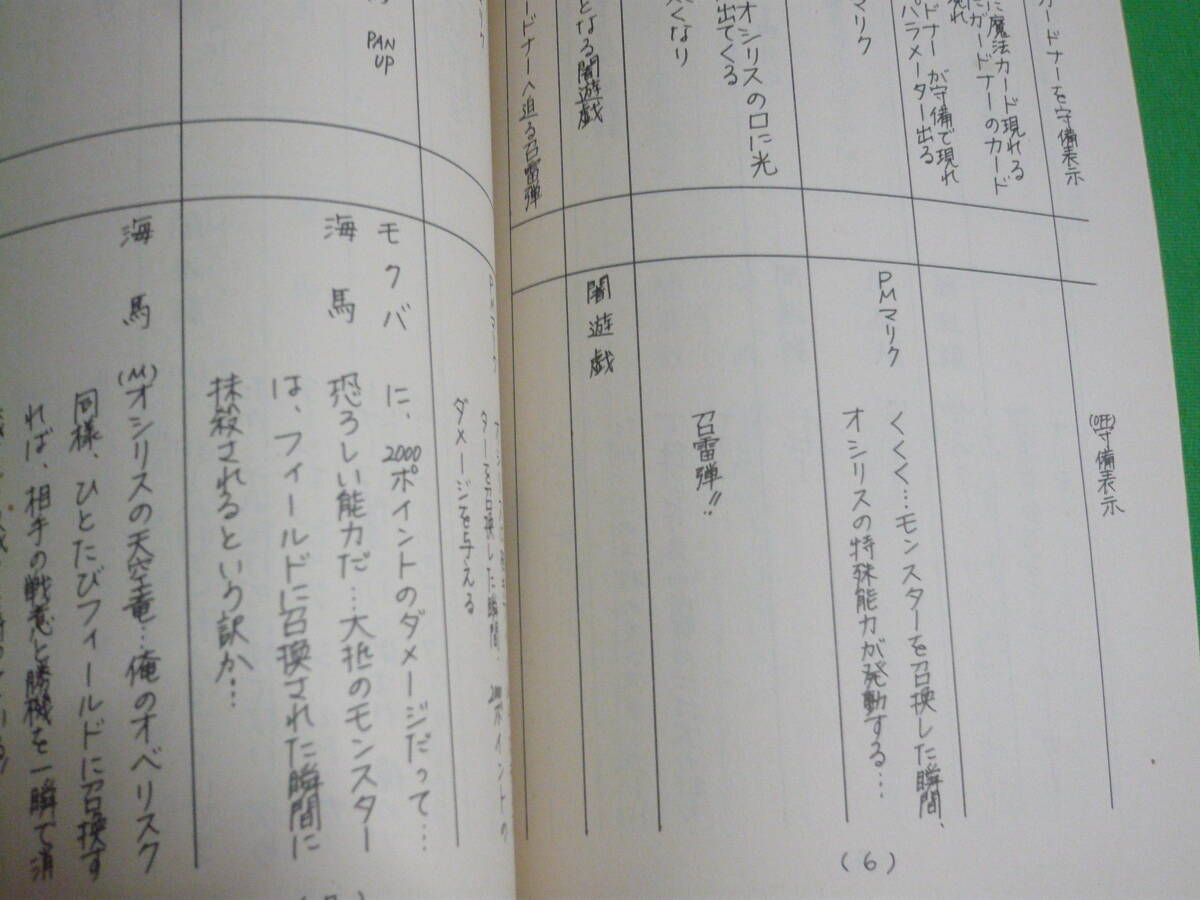 ードナーを守備表示
に魔法カード現れる
にガードナーのカード
現れ
ドナーが守備で現れ
パラメーター出る
マリク
オシリスの口に光
出てくる
なり
となる闇遊戯
ードナーへ迫る召雷弾
(OFF)守備表示
PMマリク
くくく…モンスターを召換した瞬間、
オシリスの特殊能力が発動する…
召雷弾!!
闇遊戯
(6)
PAN
UP
ターを召換した瞬間、2000ポイントの
ダメージを与える
モクバ
に、2000ポイントのダメージだって…
海馬
恐ろしい能力だ…大抵のモンスター
は、フィールドに召換された瞬間に
抹殺されるという訳か…
海馬
(M)オシリスの天空竜…俺のオベリスク
同様、ひとたびフィールドに召換す
れば、相手の戦意と勝機を一瞬で消